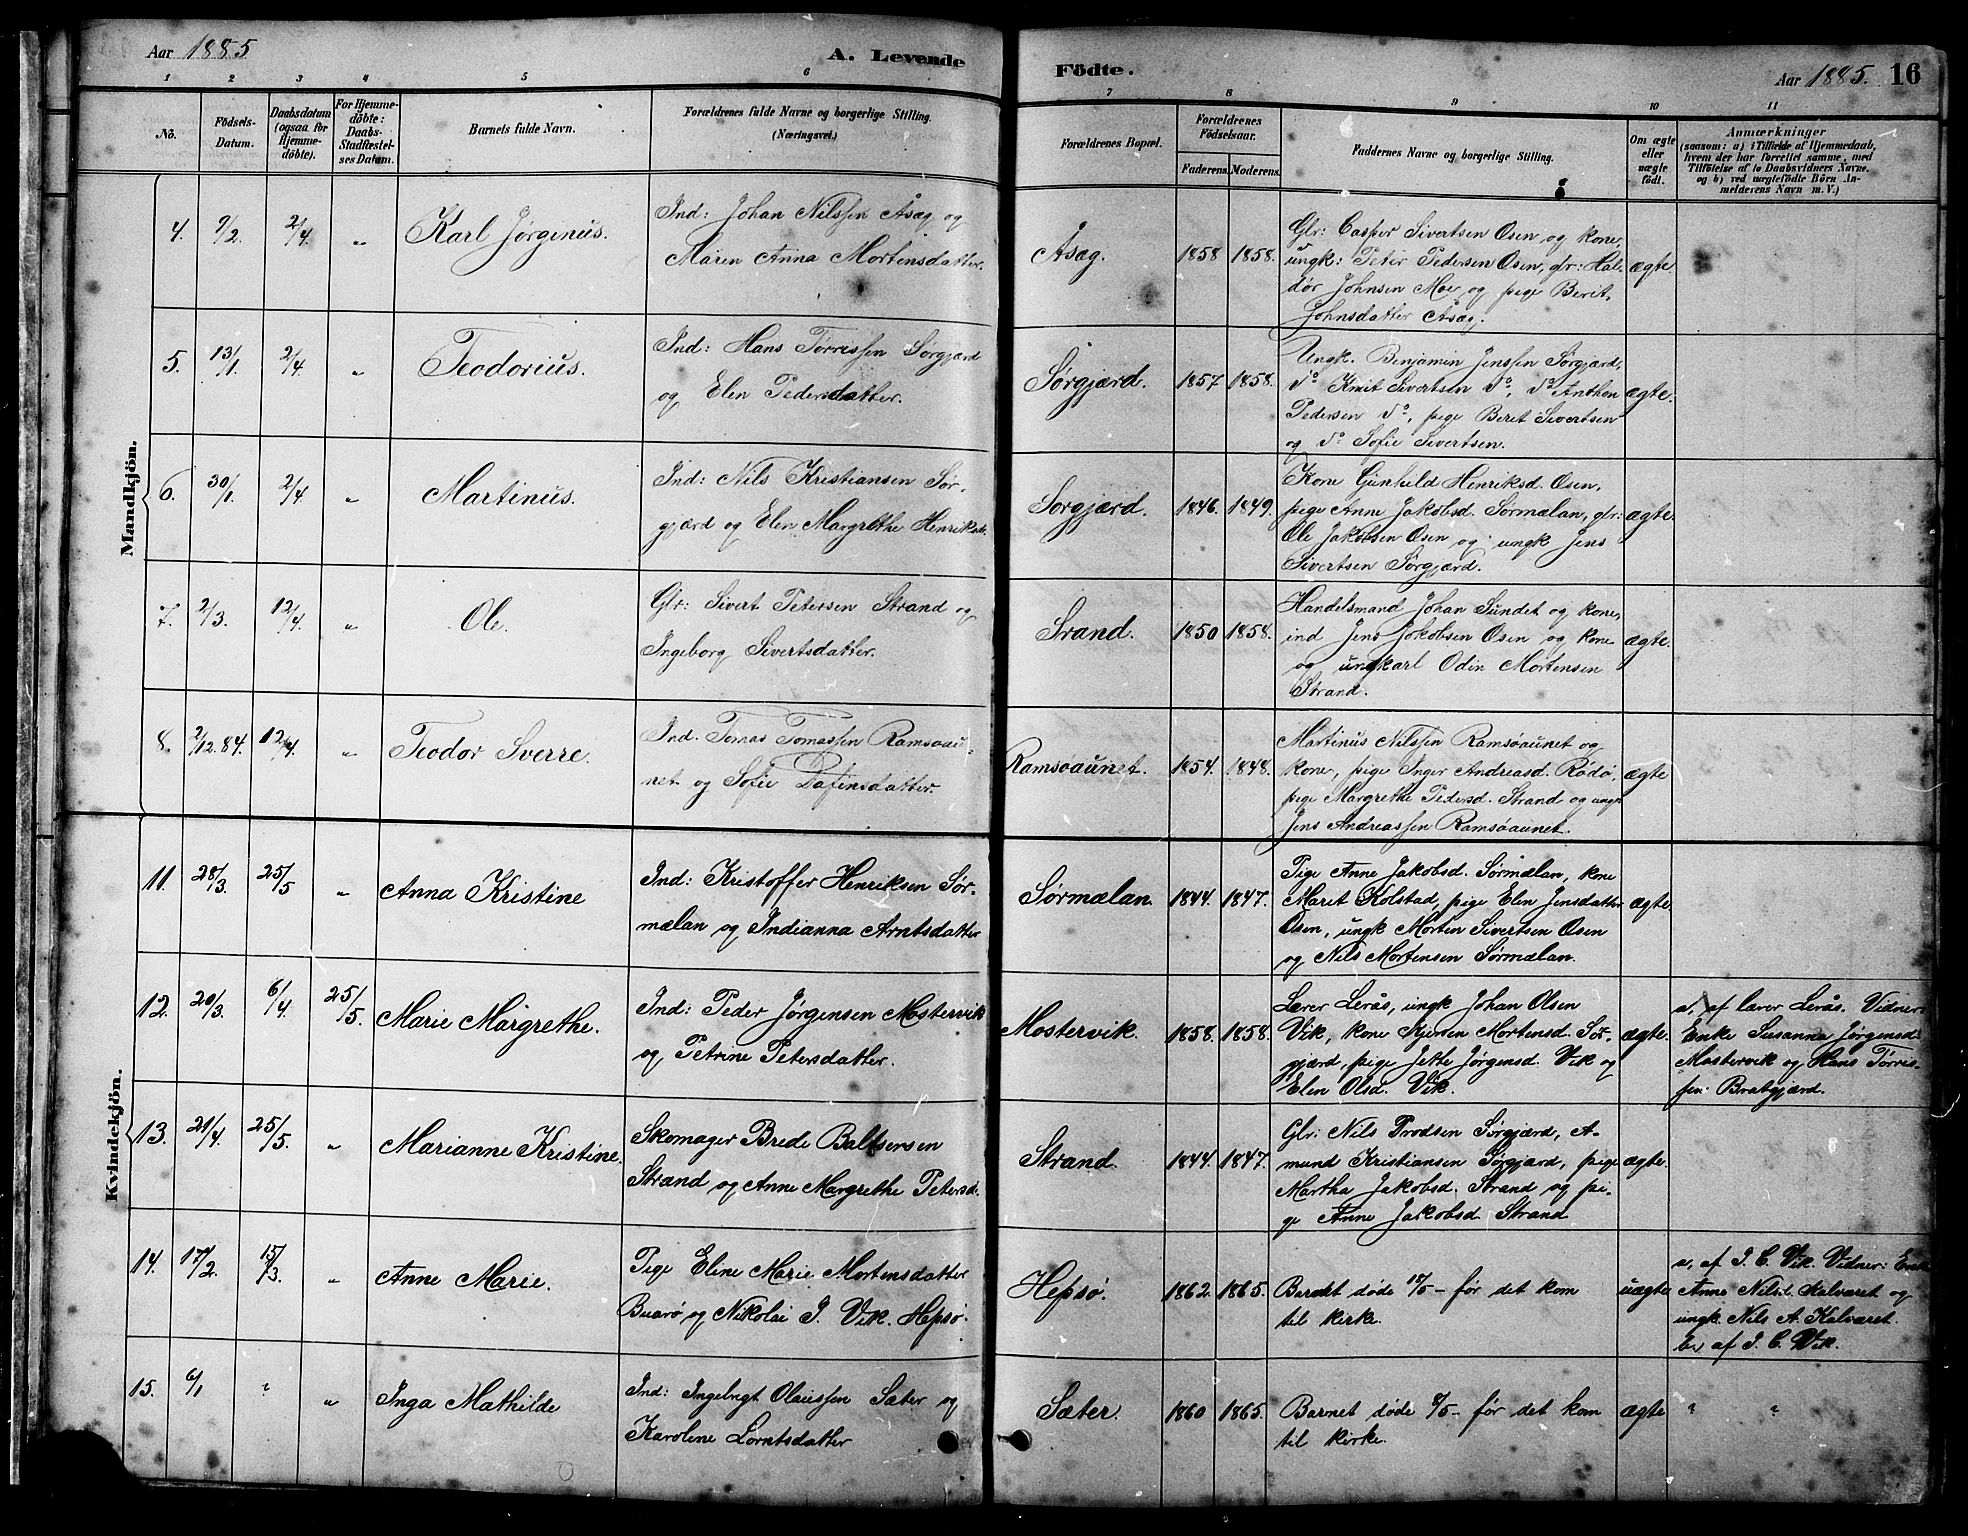 Aar 1885
A. Levende
Födte.
Aar 1885. 16
1 2 3 4 5 6 7 8 9 10 11
No.
Födsels-
Datum.
Daabsdatum
(ogsaa for
Hjemme-
döbte).
For Hjemme-
döbte:
Daabs-
Stadfæstel-
ses Datum.
Barnets fulde Navn.
Forældrenes fulde Navne og borgerlige Stilling.
(Næringsvei.)
Forældrenes Bopæl.
Forældrenes
Födselsaar.
Faderens. Moderens.
Faddernes Navne og borgerlige Stilling.
Om ægte
eller
uægte
födt.
Anmærkninger
(saasom: a) i Tilfælde af Hjemmedaab,
hvem der har forrettet samme, med
Tilföielse af to Daabsvidners Navne.
og b) ved uægtefödte Börn An-
melderens Navn m. V.)
Mandkjön.
4. 9/2 2/4. " Karl Jørginus.
Ind: Johan Nilssen Åsæg og
Maren Anna Mortensdatter.
Åsæg. 1858 1858.
Glr: Casper Sivertsen Osen og kone,
ungk: Peter Pedersen Osen, glr: Hal-
dór Johnsen Moe og pige Berit
Johnsdatter Åsæg.
ægte.
5. 13/1. 2/4. " Teodorius.
Ind: Hans Tørrissen Sørgjærd
og Elen Pedersdatter.
Sørgjærd. 1857 1858.
Ungk. Benjamin Jenssen Sørgjærd,
do Knut Sivertsen do, do Anthon
Pedersen do, pige Beret Sivertsen
og do Sofie Sivertsen.
ægte.
6. 30/1. 2/4 " Martinus.
Ind: Nils Kristiansen Sør-
gjærd og Elen Margrethe Henriksdr.
Sørgjærd. 1846. 1849.
Kone Gunhild Henriksd. Osen,
pige Anne Jakobsd. Sørmælan, glr:
Ole Jakobsen Osen og ungk Jens
Sivertsen Sørgjærd.
ægte.
7. 2/3. 12/4. " Ole.
Glr: Sivert Petersen Strand og
Ingeborg Sivertsdatter.
Strand. 1850 1858.
Handelsmand Johan Sundet og kone,
ind Jens Jakobsen Osen og kone
og ungkarl Odin Mortensen
Strand.
ægte.
8. 2/12.84. 12/4. " Teodor Sverre.
Ind. Tomas Tomassen Ramsøau-
net og Sofie Dafinsdatter.
Ramsøaunet. 1854. 1848.
Martinus Nilssen Ramsøaunet og
kone, pige Inger Andreasd. Rødø,
pige Margrethe Pedersd. Strand og ungk
Jens Andreassen Ramsøaunet.
ægte
Kvindekjön.
11. 28/3 25/5 " Anna Kristine
Ind: Kristoffer Henriksen Sør-
mælan og Indianna Arntsdatter
Sørmælan. 1844. 1847.
Pige Anne Jakobsd. Sørmælan, kone
Maret Kolstad, pige Elen Jensdatter
Osen, ungk Morten Sivertsen Osen
og Nils Mortensen Sørmælan.
ægte.
12. 20/3. 6/4 25/5. Marie Margrethe.
Ind: Peder Jørgensen Mostervik
og Petrine Petersdatter.
Mostervik. 1858. 1858.
Lærer Lerås, ungk Johan Olsen
Vik, kone Kjersten Mortensd. Sør-
gjærd, pige Jette Jørgensd. Vik og
Elen Olsd. Vik.
ægte.
a, af lærer Lerås. Vidner:
Enke Susanna Jørgensd.
Mostervik og Hans Tørris-
sen Bratgjærd.
13. 21/4. 25/5. " Marianne Kristine.
Skomager Brede Baltsersen
Strand og Anne Margrethe Petersd.
Strand. 1844. 1847.
Glr: Nils Trodsen Sørgjærd, A-
mund Kristiansen Sørgjærd, pige
Martha Jakobsd. Strand og pi-
ge Anne Jakobsd. Strand
ægte.
14. 17/2. 15/3. " Anne Marie.
Pige Eline Marie Mortensdatter
Buarø og Nikolai J. Vik. Hepsø.
Hepsø. 1862. 1865.
Barnet døde 17/5 - før det kom
til kirke.
uægte
a, af J. C. Vik. Vidner: Enke
Anne Nilsd. Kalvaret og
ungk Nils A. Kalværet.
b, af J. C. Vik.
15. 6/1 " " Inga Mathilde
Ind: Ingebrigt Olaussen Sæter og
Karoline Lorntsdatter
Sæter. 1860 1865.
Barnet døde 8/5 - før det kom
til kirke.
ægte " "